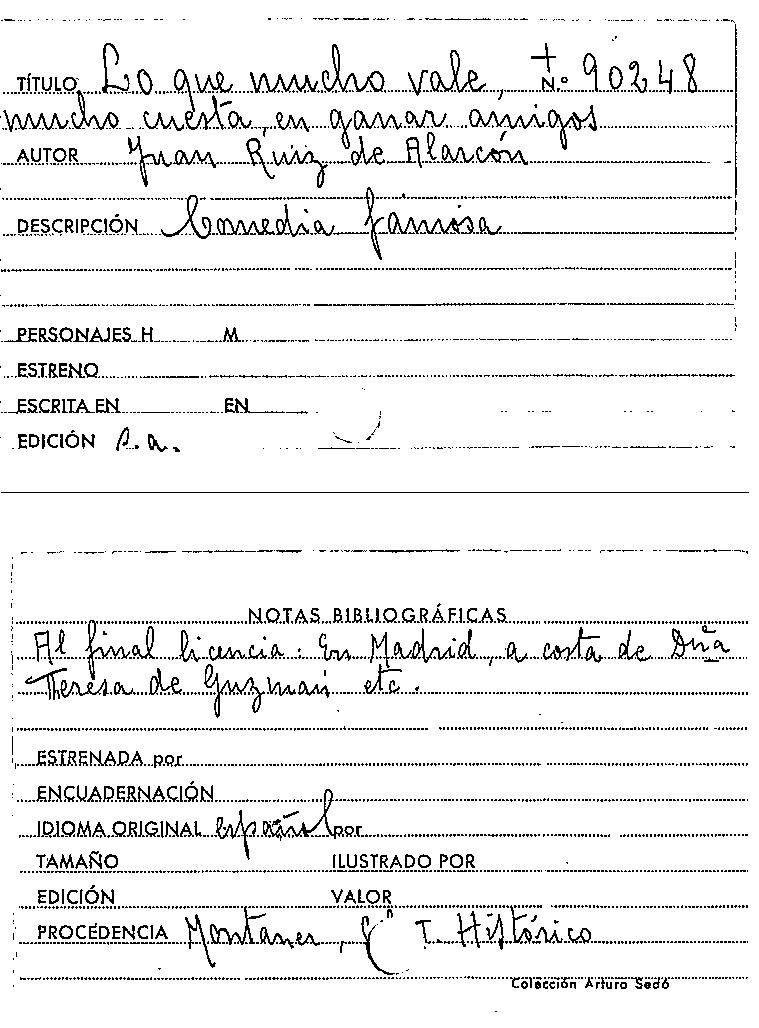 TÍTULO Lo que mucho vale, N.º 90248
mucho cuesta, en ganar amigos
AUTOR Juan Ruiz de Alarcón
DESCRIPCIÓN Comedia famosa
PERSONAJES H M
ESTRENO
ESCRITA EN EN
EDICIÓN s.a.
NOTAS BIBLIOGRÁFICAS
Al final licencia: En Madrid, a costa de Dña
Theresa de Guzman etc.
ESTRENADA por
ENCUADERNACIÓN
IDIOMA ORIGINAL español por
TAMAÑO ILUSTRADO POR
EDICIÓN VALOR
PROCEDENCIA Montaner, T. Histórico
Colección Arturo Sedó